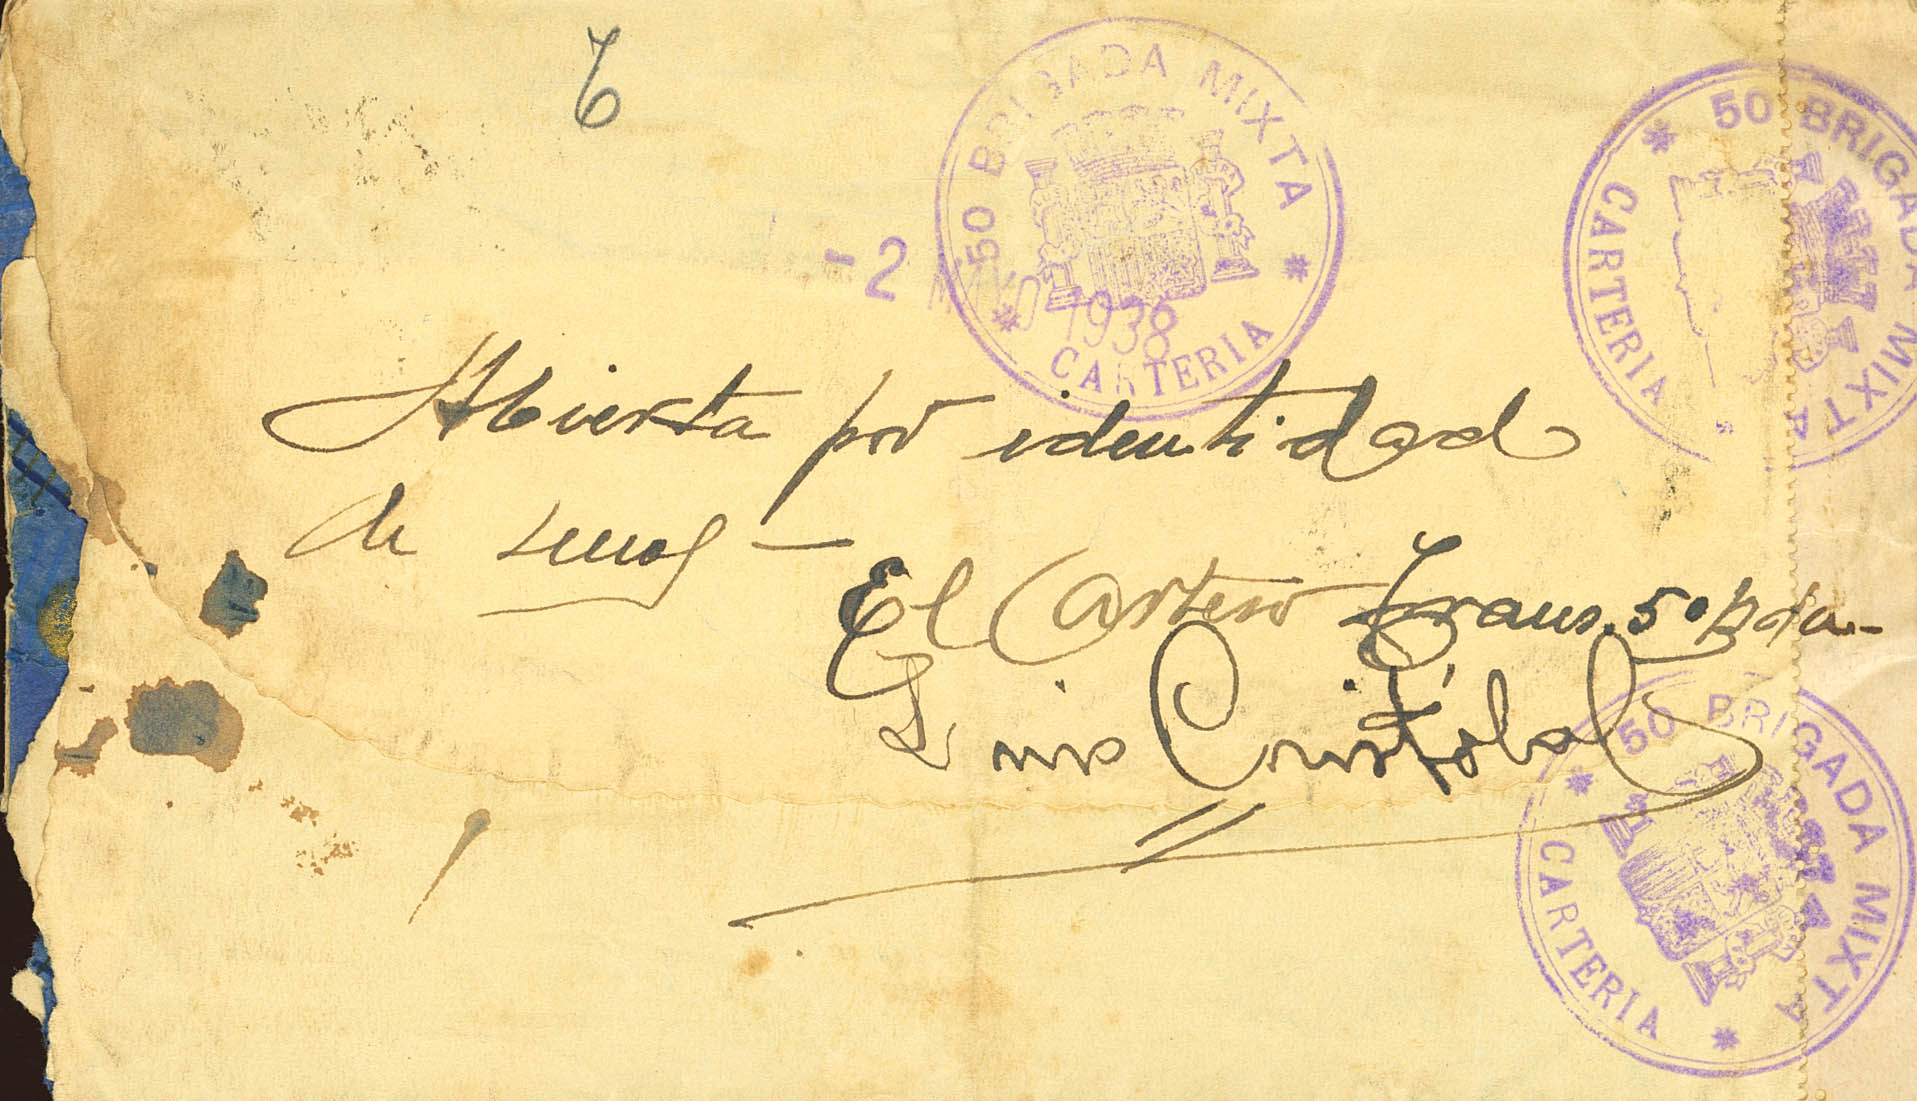 6
50 BRIGADA MIXTA
CARTERIA
-2 MAYO 1938
50 BRIGADA MIXTA
CARTERIA
Abierta por identidad
de
El Cartero Frans. 50 Bda-
Luis Cristóbal
50 BRIGADA MIXTA
CARTERIA